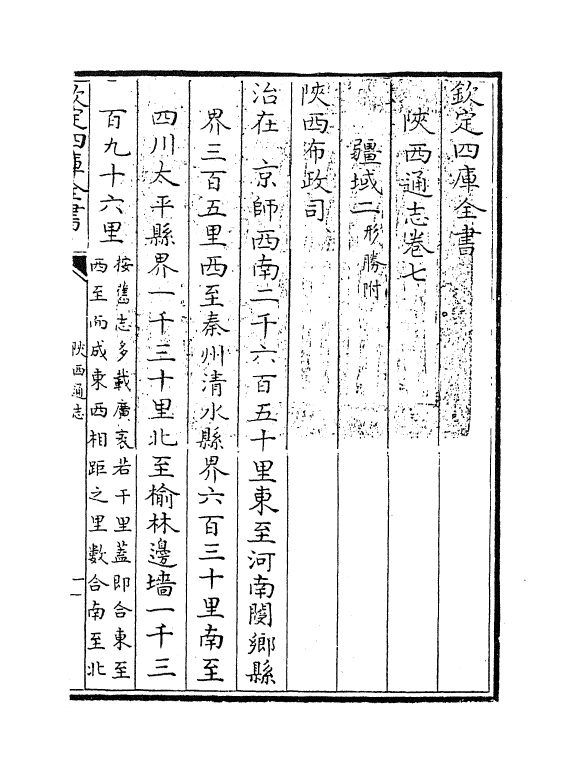 欽定四庫全書
陜西通志卷七
疆域二形勝附
陜西布政司
治在　京師西南二千六百五十里東至河南閿鄉縣
界三百五里西至秦州清水縣界六百三十里南至
四川太平縣界一千三十里北至榆林邊墻一千三
百九十六里按舊志多載廣袤若干里蓋即合東至
西至而成東西相距之里數合南至北
欽定四庫全書
陜西通志
一